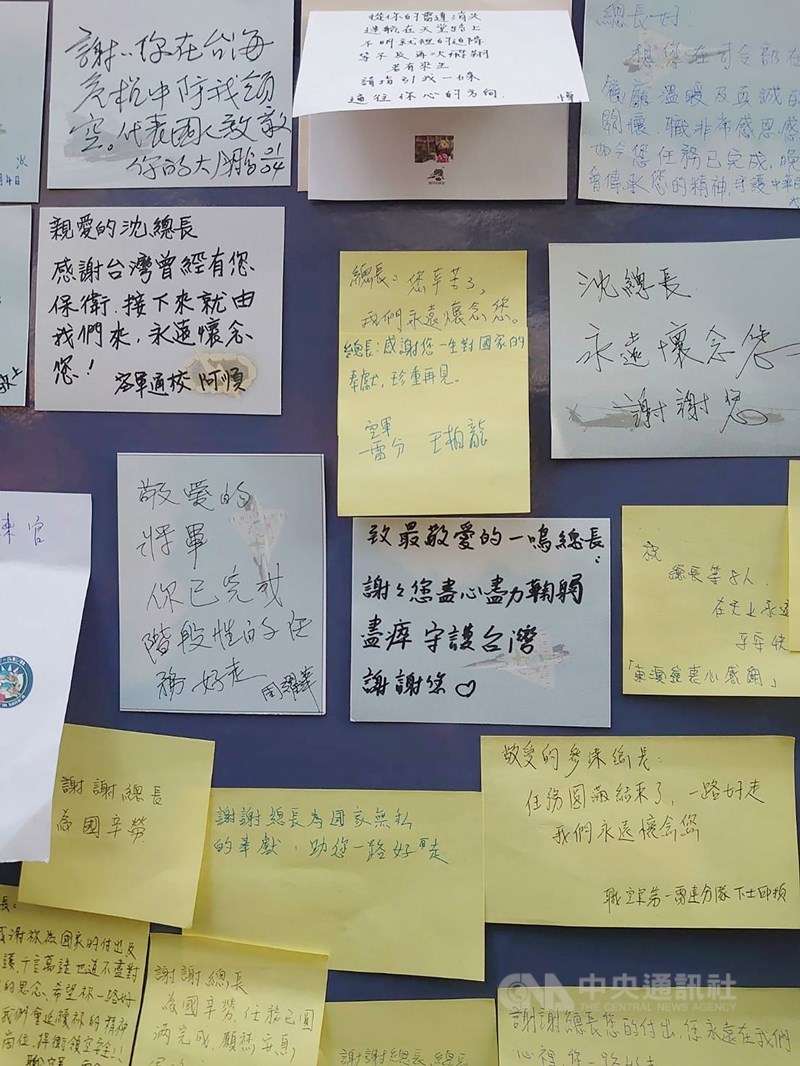 謝謝你在台海
危機中防我領
空。代表國人致敬
你的大鵬
從你的雷達消失
遨翔在天堂路上
不明就裡的迫降
等不及再次飛翔
若有來生
請指引我一條
通往你心的方向
悼
總長好:
想您在司令部在
餐廳溫暖及真誠的
關懷,職非常感恩感
如今您任務已完成,晚
會傳承您的精神,守護中華
親愛的沈總長
感謝台灣曾經有您
保衛,接下來就由
我們來,永遠懷念
您!
空軍通校 阿順
總長:您辛苦了,
我們永遠懷念您。
總長:感謝您一生對國家的
奉獻,珍重再見。
空軍
一雷分 王柏龍
沈總長
永遠懷念您
謝謝您
敬愛的
將軍
你已完成
階段性的任
務 好走
致最敬愛的一鳴總長:
謝謝您盡心盡力鞠躬
盡瘁 守護台灣
謝謝您♡
總長等8人
在天上永遠
平安快
謝謝總長
為國辛勞
謝謝總長為國家無私
的奉獻,助您一路好走
敬愛的參謀總長:
任務圓滿結束了,一路好走
我們永遠懷念您
長:
感謝祢為國家的付出及
護,千言萬語也道不盡對
的思念,希望祢一路好
我們會延續祢的精神
崗位,捍衛領空安全!!
謝謝總長
為國辛勞,任務已圓
滿完成,願祢安息,
謝謝總長,總長
謝謝總長您的付出,您永遠在我們
心裡,您一路好走
CNA 中央通訊社
THE CENTRAL NEWS AGENCY